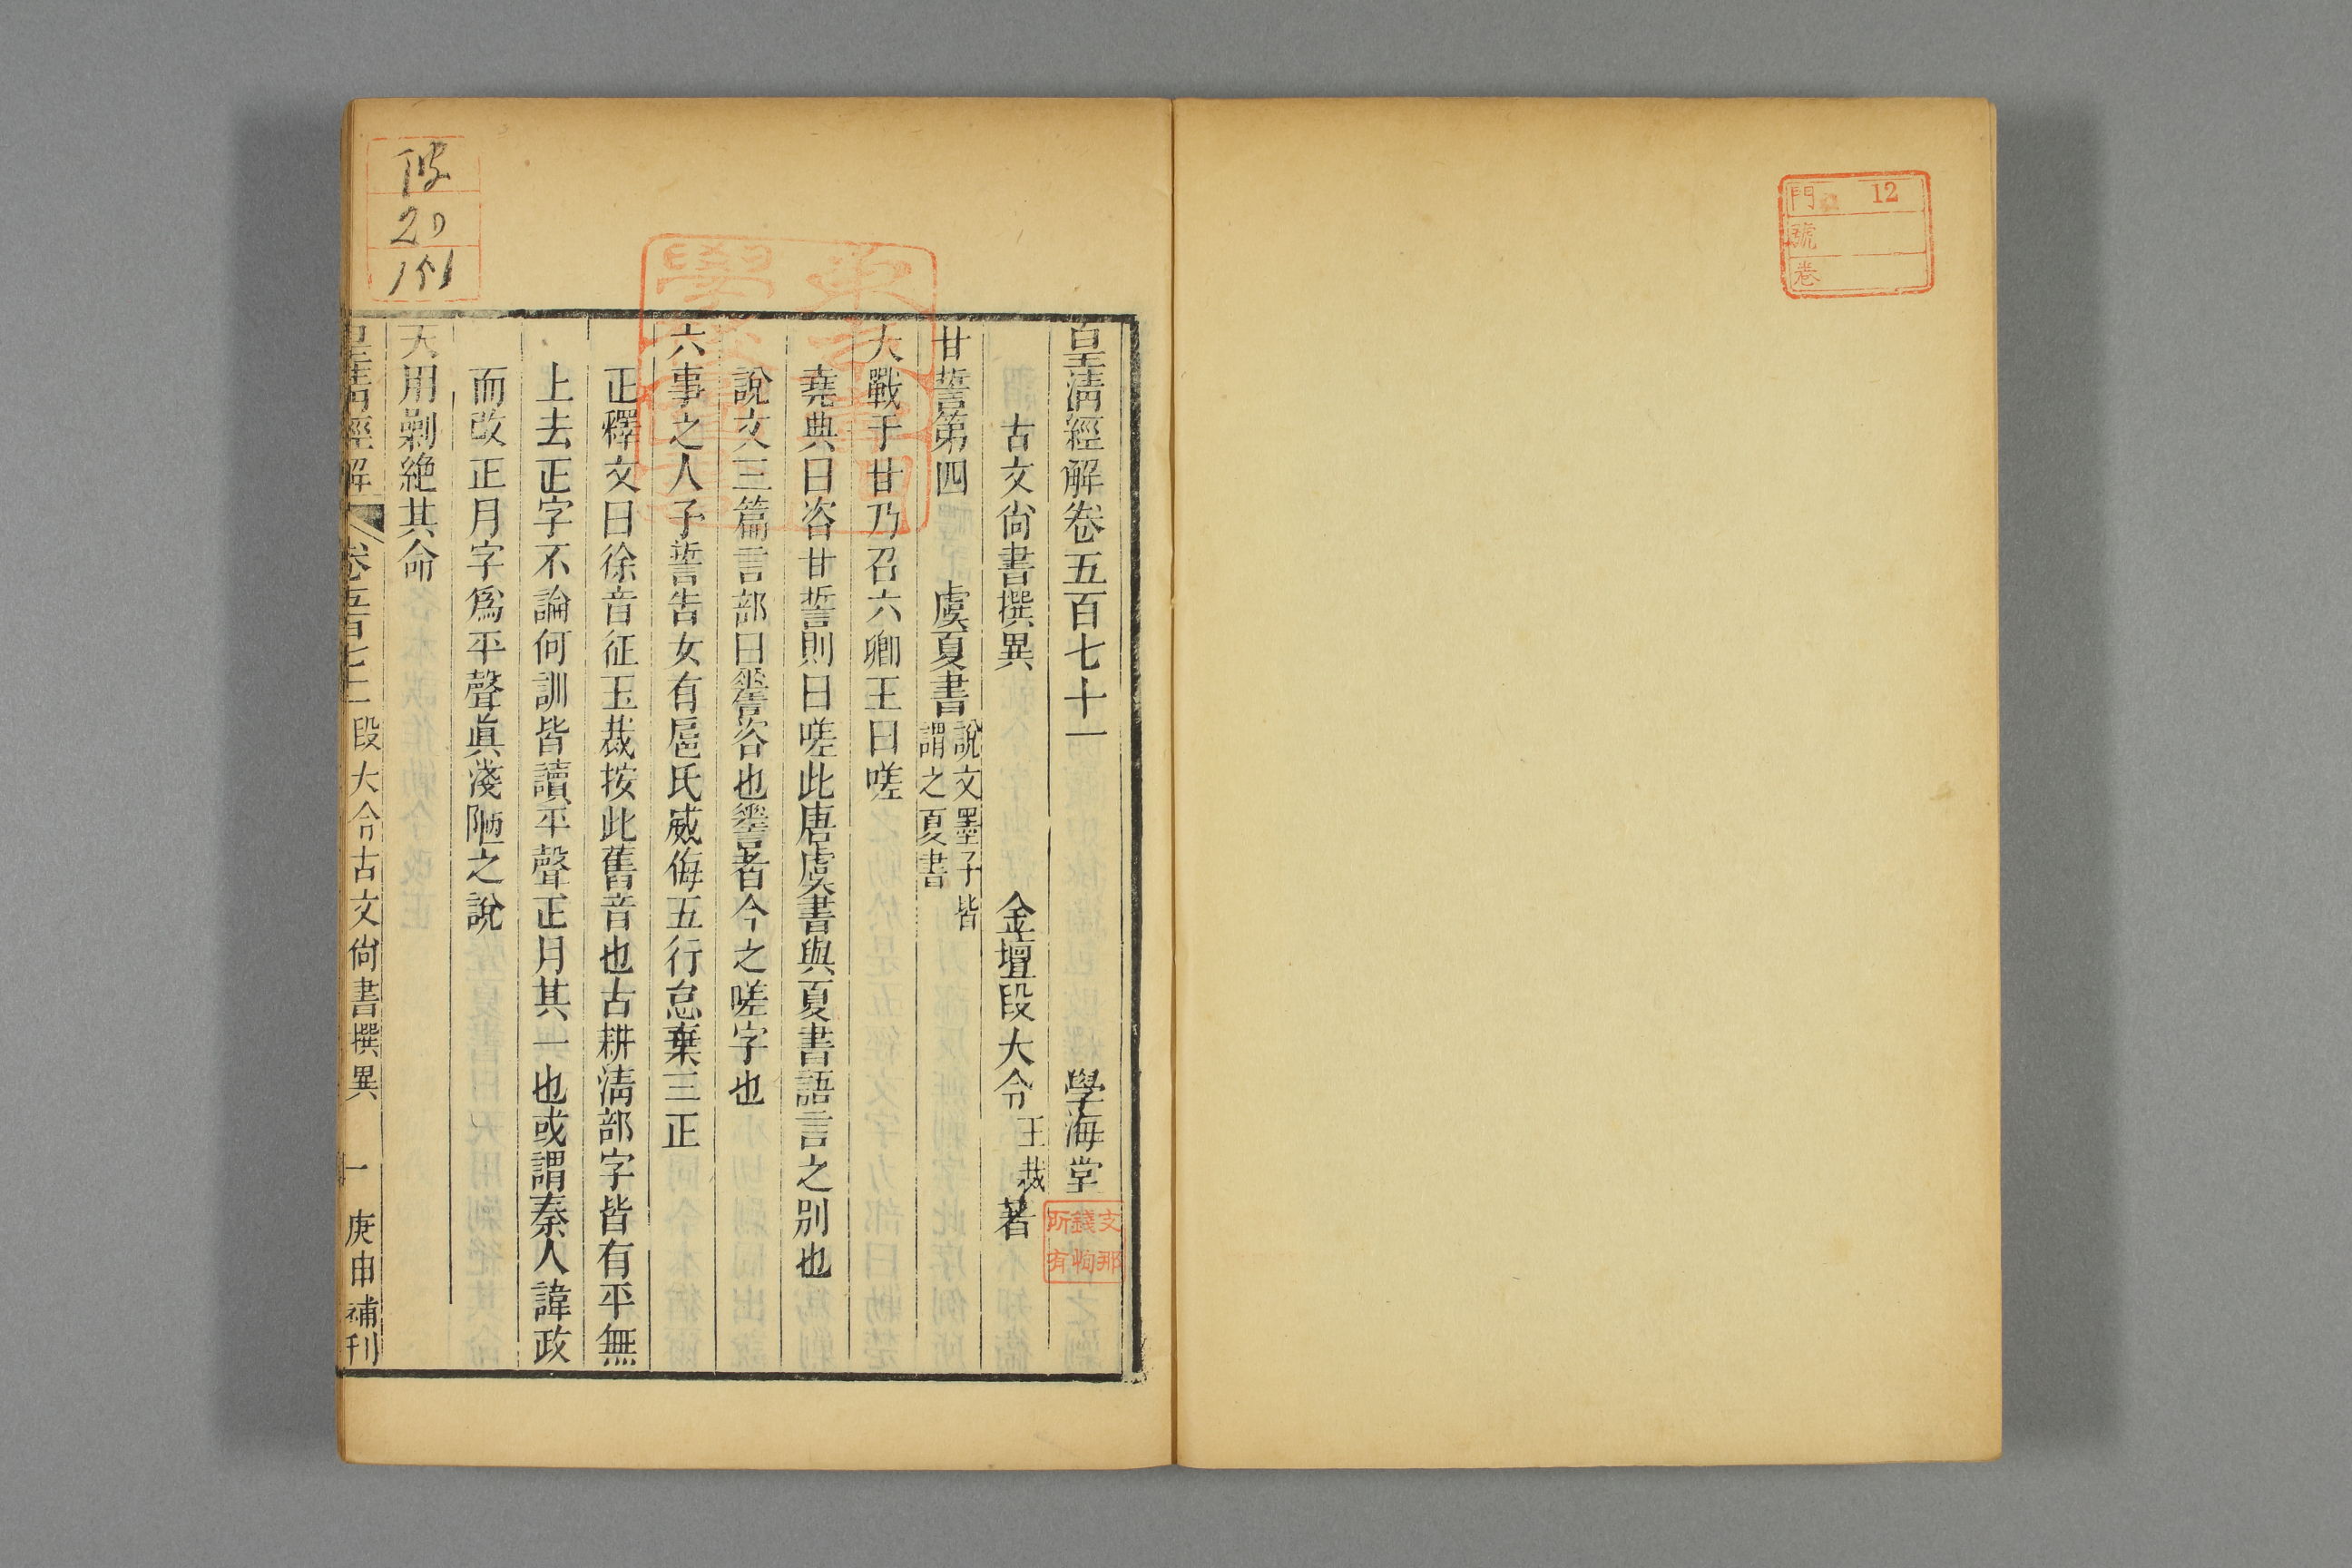 12
門
號
卷
皇清經解卷五百七十一 學海堂
古文尙書撰異 金壇段大令玉裁著
甘誓第四 虞夏書說文墨子皆
謂之夏書
大戰于甘乃召六卿王曰嗟
堯典曰咨甘誓則曰嗟此唐虞書與夏書語言之別也
說文三篇言部曰𧪜咨也𧪜者今之嗟字也
六事之人予誓告女有扈氏威侮五行怠棄三正
正釋文曰徐音征玉裁按此舊音也古耕淸部字皆有平無
上去正字不論何訓皆讀平聲正月其一也或謂秦人諱政
而改正月字爲平聲眞淺陋之說
天用剿絶其命
皇淸經解 卷五百七十一 段大令古文尙書撰異 一 庚申補刊
支那
錢恂
所有
20
151